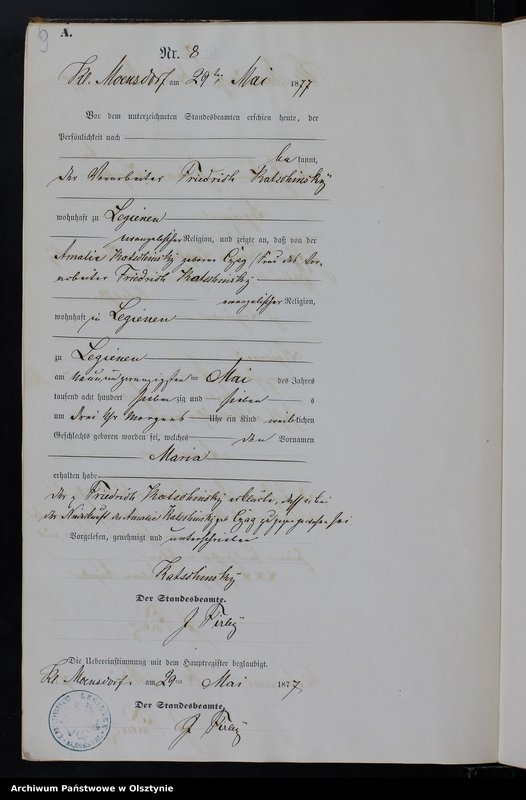 9
A.
Nr. 8
Kl. Moensdorf am 29ten Mai 1877
Vor dem unterzeichneten Standesbeamten erschien heute, der
Persönlichkeit nach
be kannt,
der Vorarbeiter Friedrich Katschinsky
wohnhaft zu Legienen
evangelischer Religion, und zeigte an, daß von der
Amalie Katschinsky geborene Czag Frau des Vor-
arbeiter Friedrich Katschinsky
evangelischer Religion,
wohnhaft zu Legienen
zu Legienen
am neunundzwanzigsten Mai des Jahres
tausend acht hundert sieben zig und sieben s
um drei Uhr Morgens Uhr ein Kind weiblichen
Geschlechts geboren worden sei, welches den Vornamen
Maria
erhalten habe
Der Friedrich Katschinsky erklärte, daß er bei
der Niederkunft der Amalie Katschinsky geb Czag zugegen gewesen sei
Vorgelesen, genehmigt und unterschrieben
Katschinsky
Der Standesbeamte.
J Firley
Die Uebereinstimmung mit dem Hauptregister beglaubigt.
Kl. Moensdorf, am 29ten Mai 1877
Der Standesbeamte.
J Firley
Archiwum Państwowe w Olsztynie